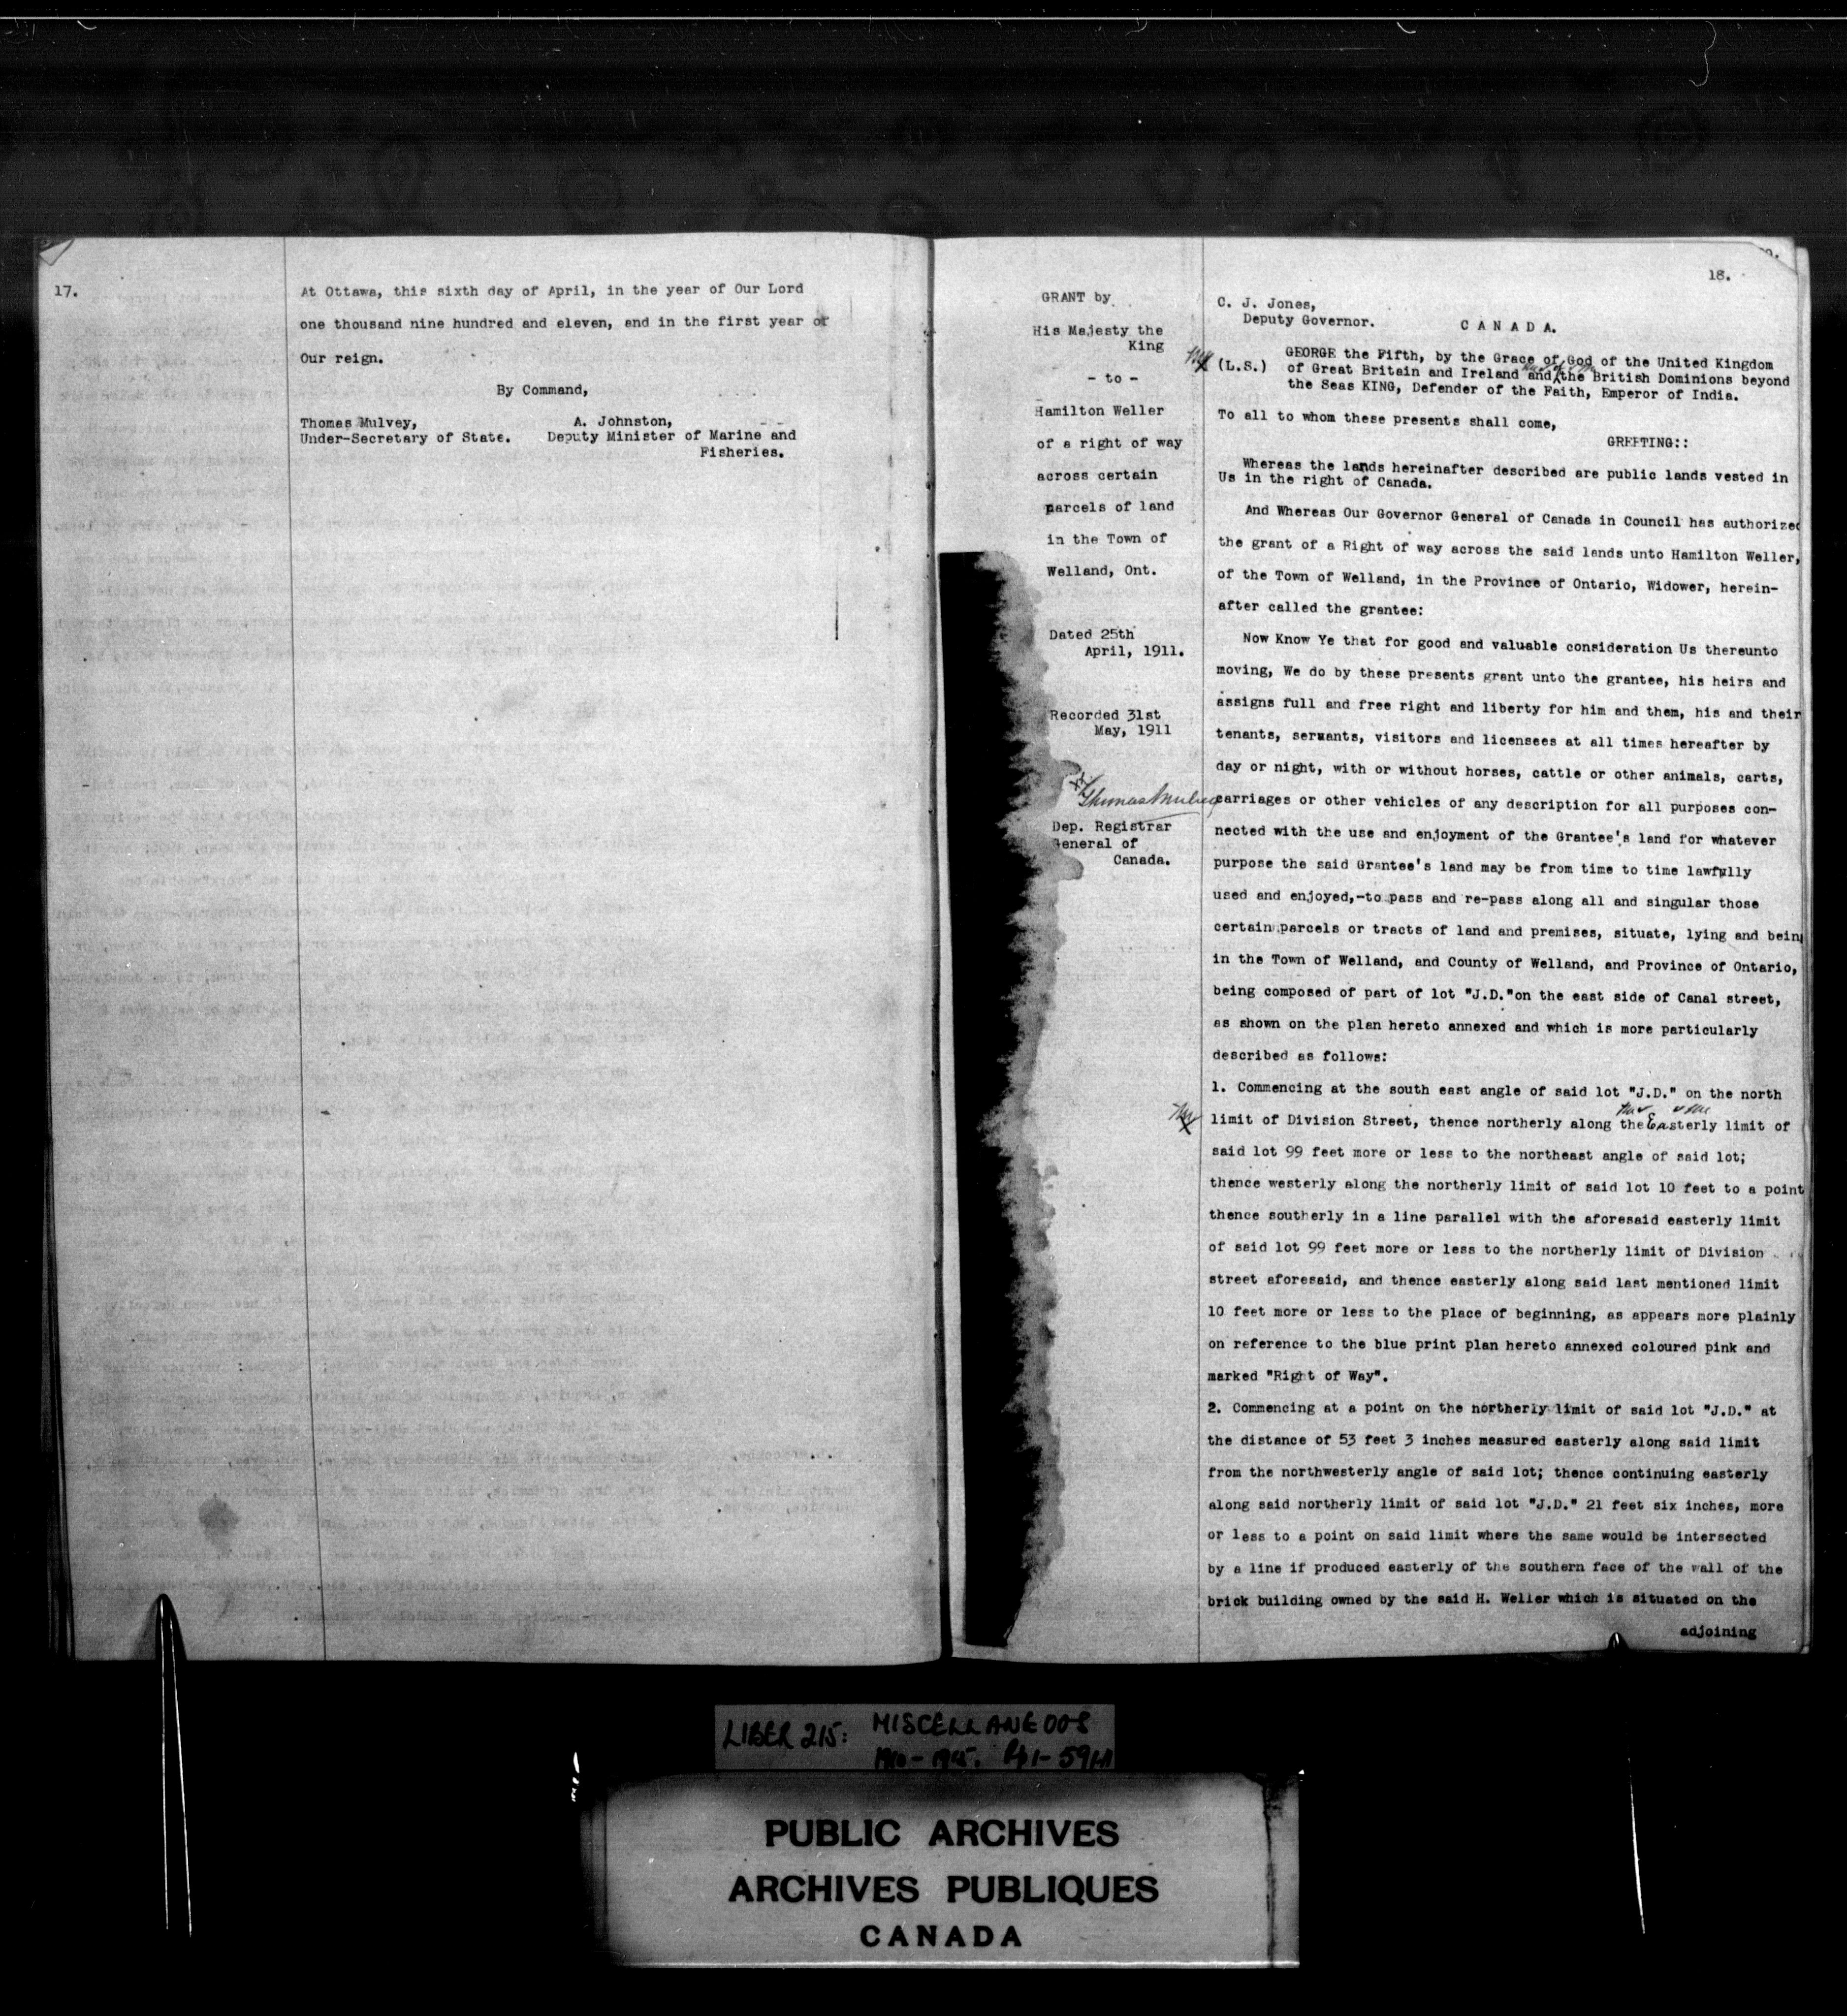 17.
At Ottawa, this sixth day of April, in the year of Our Lord
one thousand nine hundred and eleven, and in the first year of
Our reign.
By Command,
Thomas Mulvey,
Under-Secretary of State.
A. Johnston,
Deputy Minister of Marine and
Fisheries.
18.
GRANT by
His Majesty the
King
- to -
Hamilton Weller
of a right of way
across certain
parcels of land
in the Town of
Welland, Ont.
Dated 25th
April, 1911.
Recorded 31st
May, 1911
Thomas Mulvey
Dep. Registrar
General of
Canada.
C. J. Jones,
Deputy Governor.
CANADA.
(L.S.)
GEORGE the Fifth, by the Grace of God of the United Kingdom
of Great Britain and Ireland and the British Dominions beyond
the Seas KING, Defender of the Faith, Emperor of India.
To all to whom these presents shall come,
GREETING::
Whereas the lands hereinafter described are public lands vested in
Us in the right of Canada.
And Whereas Our Governor General of Canada in Council has authorized
the grant of a Right of way across the said lands unto Hamilton Weller,
of the Town of Welland, in the Province of Ontario, Widower, herein-
after called the grantee:
Now Know Ye that for good and valuable consideration Us thereunto
moving, We do by these presents grant unto the grantee, his heirs and
assigns full and free right and liberty for him and them, his and their
tenants, servants, visitors and licensees at all times hereafter by
day or night, with or without horses, cattle or other animals, carts,
carriages or other vehicles of any description for all purposes con-
nected with the use and enjoyment of the Grantee's land for whatever
purpose the said Grantee's land may be from time to time lawfully
used and enjoyed,-to pass and re-pass along all and singular those
certain parcels or tracts of land and premises, situate, lying and being
in the Town of Welland, and County of Welland, and Province of Ontario,
being composed of part of lot "J.D."on the east side of Canal street,
as shown on the plan hereto annexed and which is more particularly
described as follows:
1. Commencing at the south east angle of said lot "J.D." on the north
limit of Division Street, thence northerly along the Easterly limit of
said lot 99 feet more or less to the northeast angle of said lot;
thence westerly along the northerly limit of said lot 10 feet to a point
thence southerly in a line parallel with the aforesaid easterly limit
of said lot 99 feet more or less to the northerly limit of Division
street aforesaid, and thence easterly along said last mentioned limit
10 feet more or less to the place of beginning, as appears more plainly
on reference to the blue print plan hereto annexed coloured pink and
marked "Right of Way".
2. Commencing at a point on the northerly limit of said lot "J.D." at
the distance of 53 feet 3 inches measured easterly along said limit
from the northwesterly angle of said lot; thence continuing easterly
along said northerly limit of said lot "J.D." 21 feet six inches, more
or less to a point on said limit where the same would be intersected
by a line if produced easterly of the southern face of the wall of the
brick building owned by the said H. Weller which is situated on the
adjoining
LIBER 215: MISCELLANEOUS
1910-1915. Pp 1-594
PUBLIC ARCHIVES
ARCHIVES PUBLIQUES
CANADA